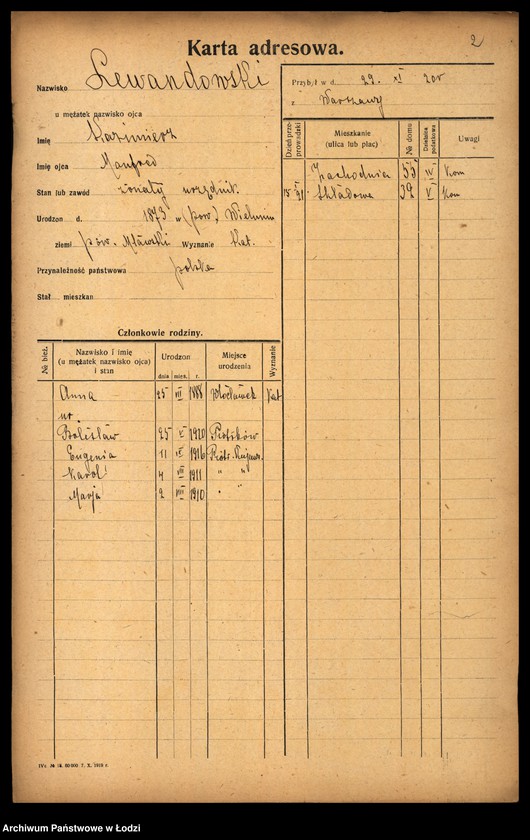 Karta adresowa.
2
Nazwisko Lewandowski
u mężatek nazwisko ojca
Imię Kazimierz
Imię ojca Manfred
Stan lub zawód żonaty urzędnik.
Urodzon d. 1873 w (pow.)
ziemi pow. Mławski Wyznanie kat.
Przynależność państwowa polska
Stał. mieszkan.
Przybył w d. 29. XI 20r
z Warszawy
Dzień przeprowadzki
Mieszkanie (ulica lub plac)
№ domu
Dzielnica podatkowa
Uwagi
Zachodnia 55 IV Kom
15 X 21 Składowa 32 V Kom
Członkowie rodziny.
№ bież.
Nazwisko i imię
(u mężatek nazwisko ojca)
i stan
Urodzon
dnia mies. r.
Miejsce urodzenia
Wyznanie
Anna 25 VII 1888 Włocławek Kat
ur.
Bolesław 25 V 1920 Piotrków
Eugenia 11 IX 1916 Piotr. Kujaw.
Karol 4 VII 1911 " "
Marja 2 VIII 1910 " "
IVc. № 14. 60 000. 7. X. 1918 r.
Archiwum Państwowe w Łodzi